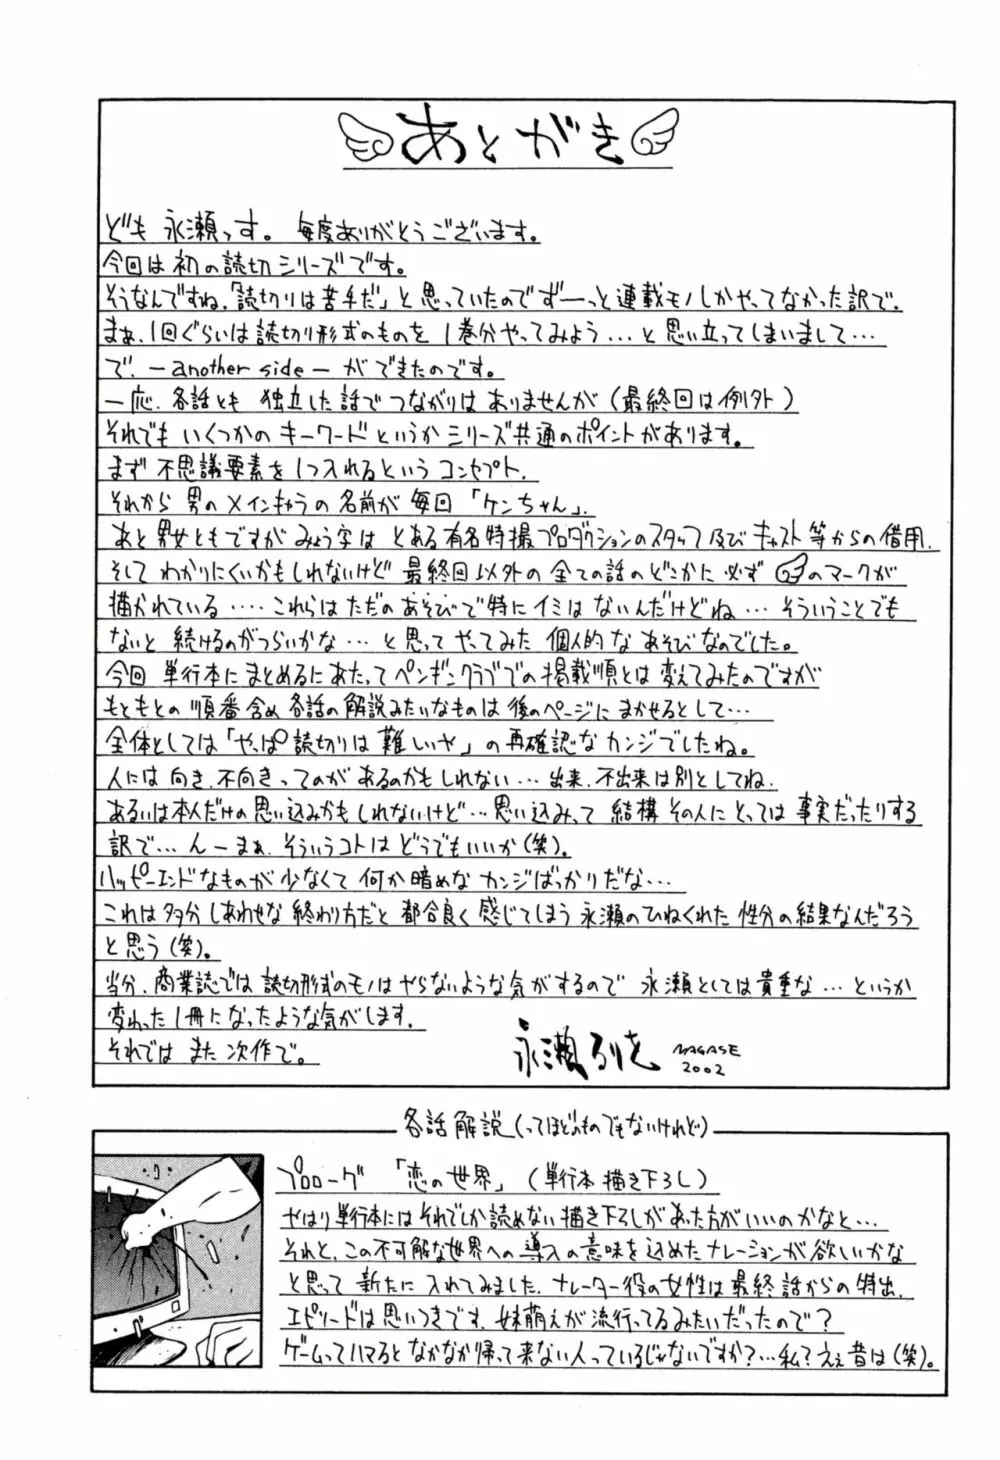 あとがき
ども 永瀬っす。毎度ありがとうございます。
今回は初の読切シリーズです。
そうなんですね、「読切りは苦手だ」と思っていたのでずーっと連載モノしかやってなかった訳で、
まぁ、1回ぐらいは読切り形式のものを1巻分やってみよう…と思い立ってしまいまして…
で、―another side―ができたのです。
一応、各話とも 独立した話で つながりは ありませんが(最終回は例外)
それでも いくつかの キーワードというか シリーズ共通のポイントがあります。
まず 不思議要素を1つ入れるという コンセプト、
それから 男のメインキャラの名前が 毎回「ケンちゃん」、
あと男女ともですが みょう字は とある有名特撮プロダクションのスタッフ及びキャスト等からの借用、
そして わかりにくいかもしれないけど 最終回以外の 全ての話のどこかに 必ず のマークが
描かれている‥‥これらはただのあそびで特にイミはないんだけどね…そういうことでも
ないと 続けるのがつらいかな…と思って やってみた 個人的な あそびなのでした。
今回 単行本にまとめるにあたって ペンギンクラブでの掲載順とは 変えてみたのですが
もともとの 順番含め 各話の解説みたいなものは 後のページに まかせるとして…
全体としては「やっぱ読切りは 難しいや」の再確認な カンジでしたね。
人には 向き、不向きってのが あるのかもしれない…出来、不出来は別としてね、
あるいは本人だけの思い込みかもしれないけど…思い込みって 結構 その人にとっては 事実だったりする
訳で…んーまぁ、そういうコトは どうでもいいか(笑)。
ハッピーエンドなものが 少なくて 何か暗めな カンジばっかりだな…
これは多分しあわせな 終わり方だと 都合良く 感じてしまう 永瀬のひねくれた 性分の結果なんだろう
と思う(笑)。
当分、商業誌では 読切形式のモノはやらないような気がするので 永瀬としては貴重な…というか
変わった1冊になったような気がします、
それでは また 次作で。
永瀬るりを NAGASE
2002
各話解説(ってほどのものでもないけれど)
プロローグ 「恋の世界」(単行本描き下ろし)
やはり単行本にはそれでしか読めない描き下ろしがあった方がいいのかなと…
それと、この不可解な世界への導入の意味を込めたナレーションが欲しいかな
と思って 新たに 入れてみました、ナレーター役の女性は最終話からの特出、
エピソードは思いつきです、妹萌えが流行ってるみたいだったので?
ゲームってハマるとなかなか帰って来ない人っているじゃないですか?…私?えぇ昔は(笑)。